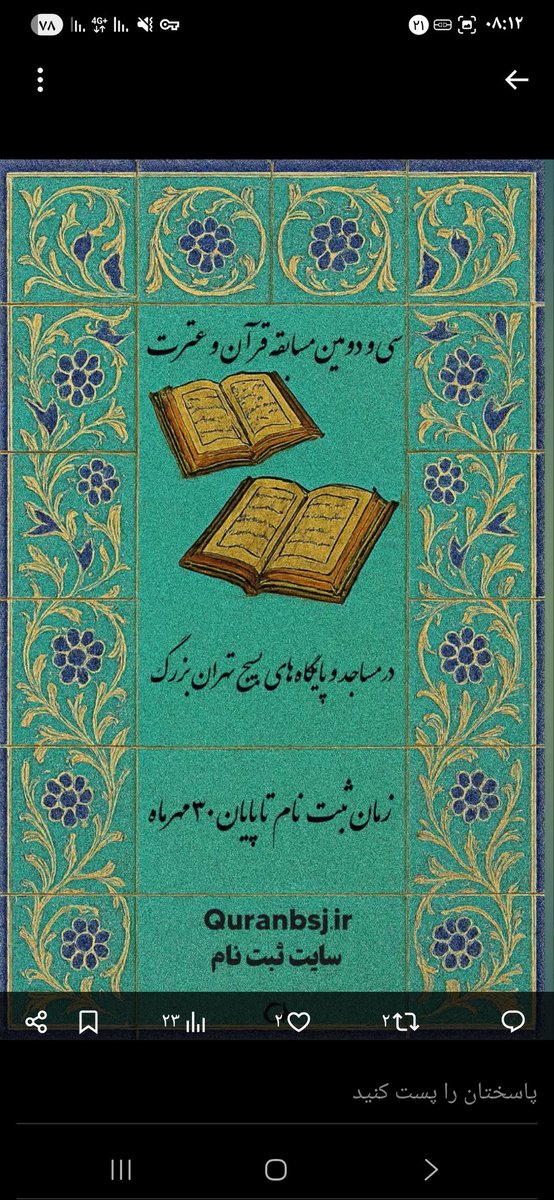 ۷۸
4G+
۲۱
۰۸:۱۲
سی و دومین مسابقه قرآن و عترت
در مساجد و پایگاه های بسیج تهران بزرگ
زمان ثبت نام تا پایان ۳۰ مهر ماه
Quranbsj.ir
سایت ثبت نام
۲۳
۲
۲
پاسختان را پست کنید